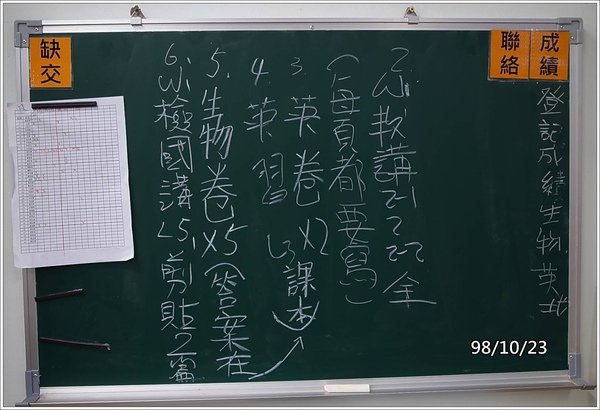 成績
聯絡
登記成績生物,英,北
2.小 講2-1~2-2全
(每頁都要寫)
3.英卷x2
4.英習L3
課本
5.生物卷x5(答案在
6.小檢國講L5,剪貼2篇
缺交
98/10/23